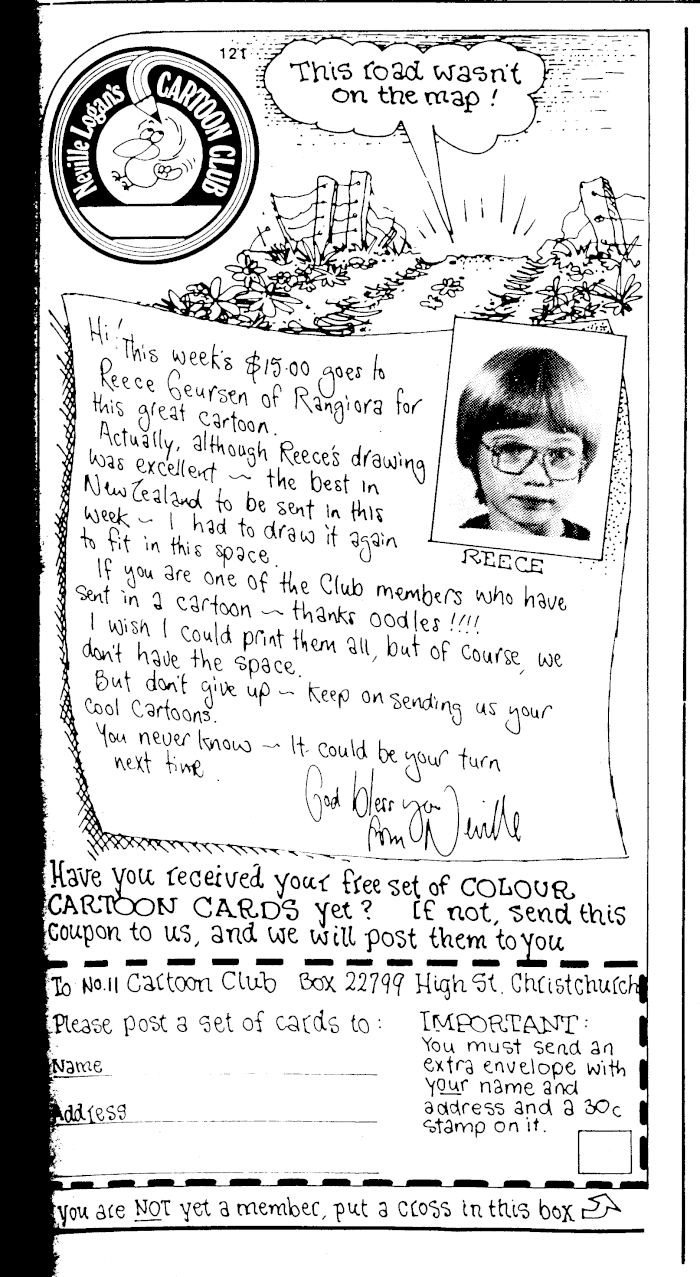 Neville Logan's CARTOON CLUB
121
This road wasn't
on the map!
Hi! This week's $15.00 goes to
Reece Geursen of Rangiora for
this great cartoon.
Actually, although Reece's drawing
was excellent ~ the best in
New Zealand to be sent in this
week ~ I had to draw it again
to fit in this space.
If you are one of the Club members who have
sent in a cartoon ~ thanks oodles !!!!
I wish I could print them all, but of course, we
don't have the space.
But don't give up ~ keep on sending us your
cool cartoons.
You never know ~ It could be your turn
next time
God bless you
from Neville
REECE
Have you received your free set of COLOUR
CARTOON CARDS yet? If not, send this
coupon to us, and we will post them to you
To No.11 Cartoon Club Box 22799 High St. Christchurch
Please post a set of cards to:
Name
Address
IMPORTANT:
You must send an
extra envelope with
your name and
address and a 30c
stamp on it.
you are NOT yet a member, put a cross in this box